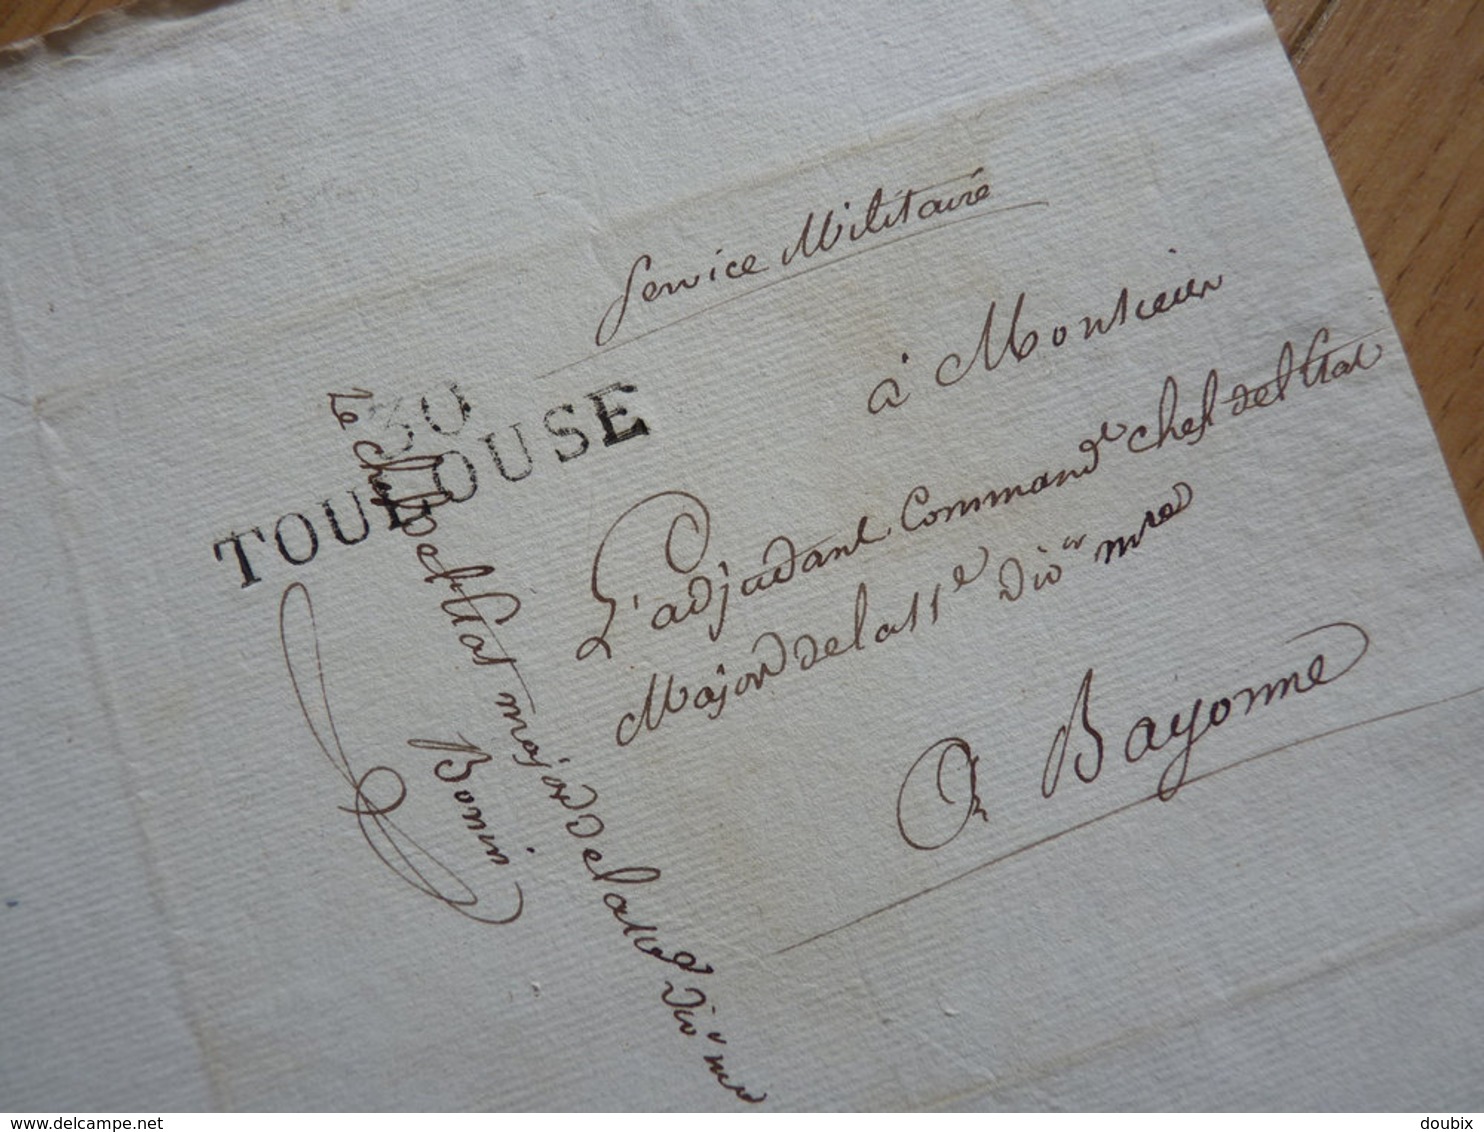 Service Militaire
à Monsieur
L'adjudant Commandt chef del'Etat
Major dela 11e Dion mre
A Bayonne
30
TOULOUSE
Le chef del'Etat major dela Dion mre
Bonin
delcampe.net
doubix